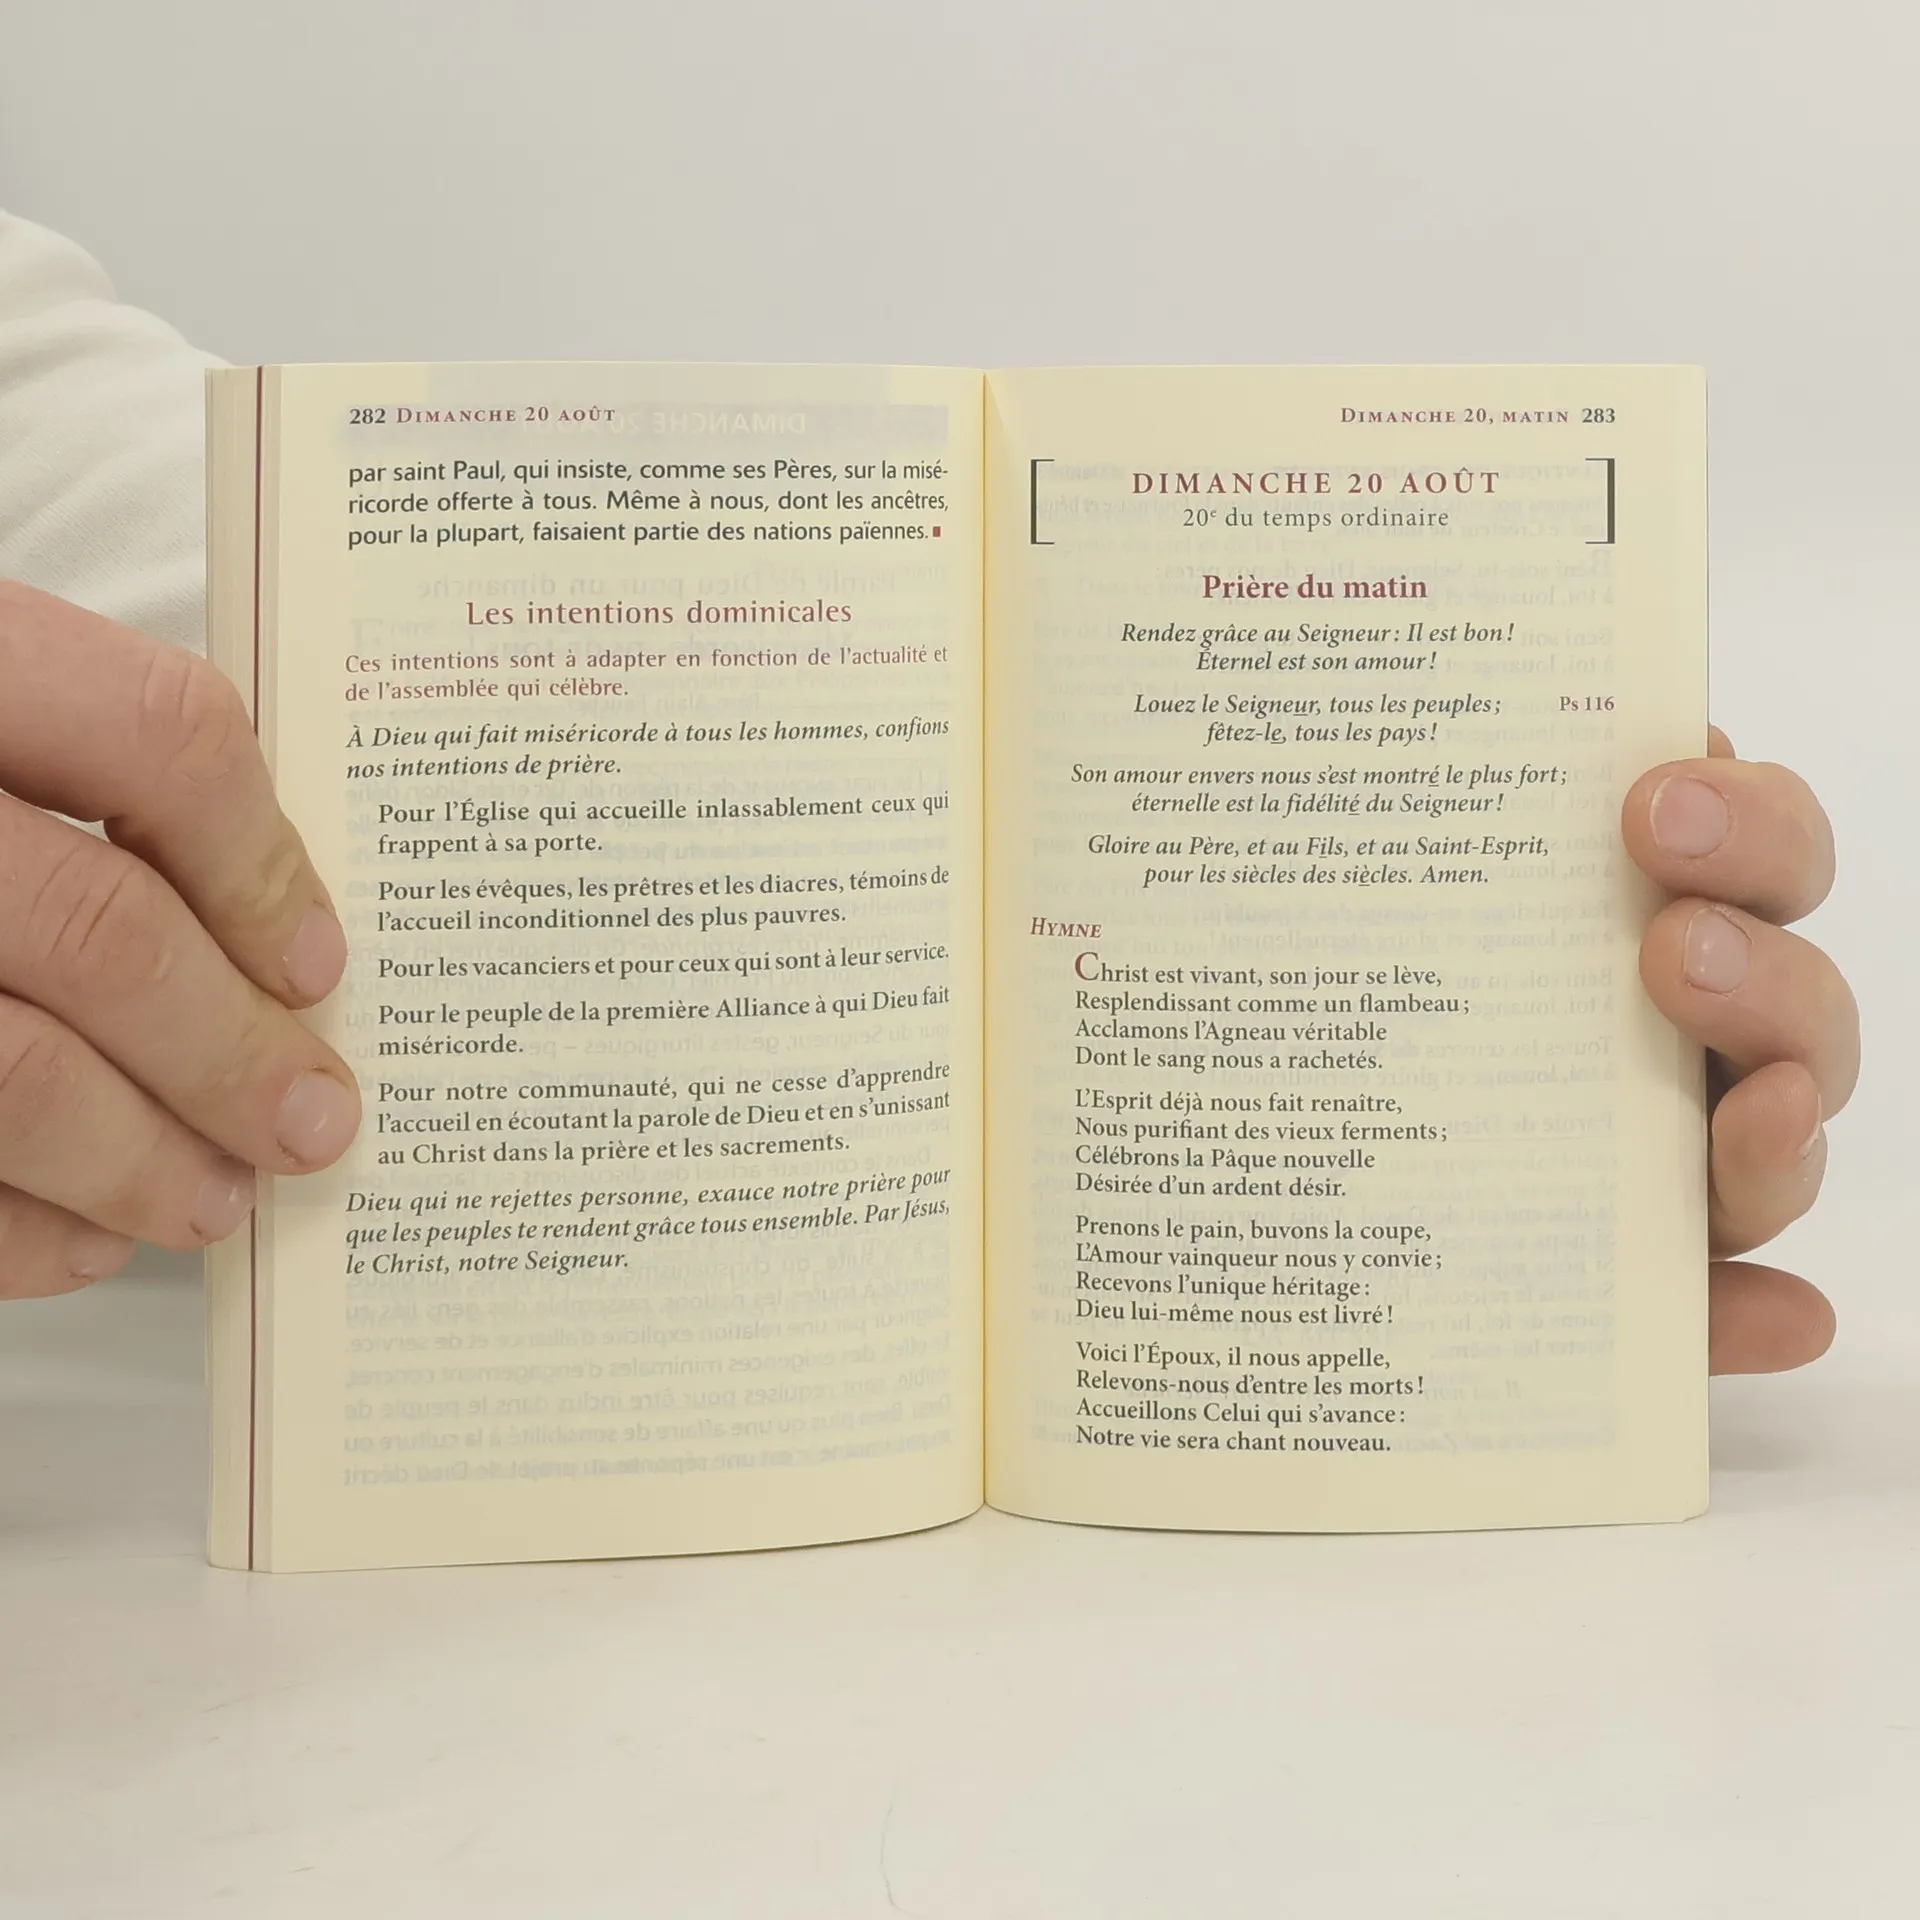 282 DIMANCHE 20 AOÛT
par saint Paul, qui insiste, comme ses Pères, sur la misé-
ricorde offerte à tous. Même à nous, dont les ancêtres,
pour la plupart, faisaient partie des nations païennes.
Les intentions dominicales
Ces intentions sont à adapter en fonction de l'actualité et
de l'assemblée qui célèbre.
À Dieu qui fait miséricorde à tous les hommes, confions
nos intentions de prière.
Pour l'Église qui accueille inlassablement ceux qui
frappent à sa porte.
Pour les évêques, les prêtres et les diacres, témoins de
l'accueil inconditionnel des plus pauvres.
Pour les vacanciers et pour ceux qui sont à leur service.
Pour le peuple de la première Alliance à qui Dieu fait
miséricorde.
Pour notre communauté, qui ne cesse d'apprendre
l'accueil en écoutant la parole de Dieu et en s'unissant
au Christ dans la prière et les sacrements.
Dieu qui ne rejettes personne, exauce notre prière pour
que les peuples te rendent grâce tous ensemble. Par Jésus,
le Christ, notre Seigneur.
DIMANCHE 20, MATIN 283
DIMANCHE 20 AOÛT
20e du temps ordinaire
Prière du matin
Rendez grâce au Seigneur : Il est bon !
Éternel est son amour !
Louez le Seigneur, tous les peuples ; Ps 116
fêtez-le, tous les pays !
Son amour envers nous s'est montré le plus fort ;
éternelle est la fidélité du Seigneur !
Gloire au Père, et au Fils, et au Saint-Esprit,
pour les siècles des siècles. Amen.
HYMNE
Christ est vivant, son jour se lève,
Resplendissant comme un flambeau ;
Acclamons l'Agneau véritable
Dont le sang nous a rachetés.
L'Esprit déjà nous fait renaître,
Nous purifiant des vieux ferments ;
Célébrons la Pâque nouvelle
Désirée d'un ardent désir.
Prenons le pain, buvons la coupe,
L'Amour vainqueur nous y convie ;
Recevons l'unique héritage :
Dieu lui-même nous est livré !
Voici l'Époux, il nous appelle,
Relevons-nous d'entre les morts !
Accueillons Celui qui s'avance :
Notre vie sera chant nouveau.